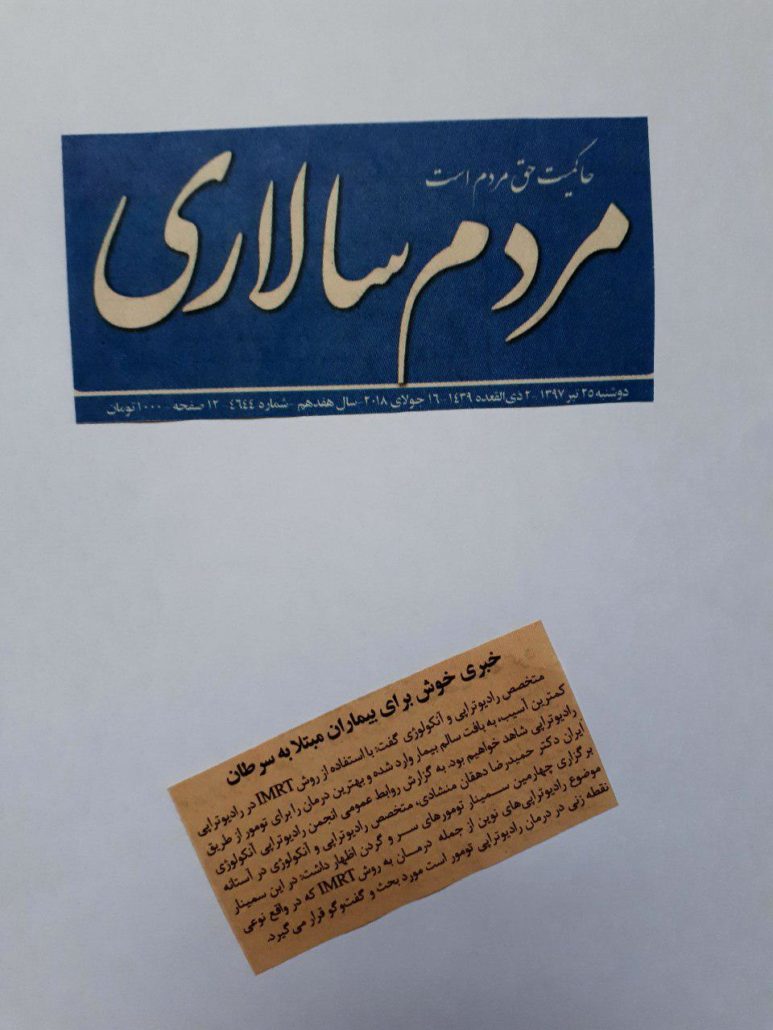 حاکمیت حق مردم است
مردم سالاری
دوشنبه ۲۵ تیر ۱۳۹۷ - ۲ ذی‌القعده ۱۴۳۹ - ۱۶ جولای ۲۰۱۸ - سال هفدهم - شماره ۴۶۴۴ - ۱۲ صفحه - ۱۰۰۰ تومان
خبری خوش برای بیماران مبتلا به سرطان
متخصص رادیوتراپی و آنکولوژی گفت: با استفاده از روش IMRT در رادیوتراپی
کمترین آسیب، به بافت سالم بیمار وارد شده و بهترین درمان را برای تومور از طریق
رادیوتراپی شاهد خواهیم بود. به گزارش روابط عمومی انجمن رادیوتراپی آنکولوژی
ایران دکتر حمیدرضا دهقان منشادی، متخصص رادیوتراپی و آنکولوژی در آستانه
برگزاری چهارمین سمینار تومورهای سر و گردن اظهار داشت: در این سمینار
موضوع رادیوتراپی‌های نوین از جمله درمان به روش IMRT که در واقع نوعی
نقطه زنی در درمان رادیوتراپی تومور است مورد بحث و گفت‌وگو قرار می‌گیرد.